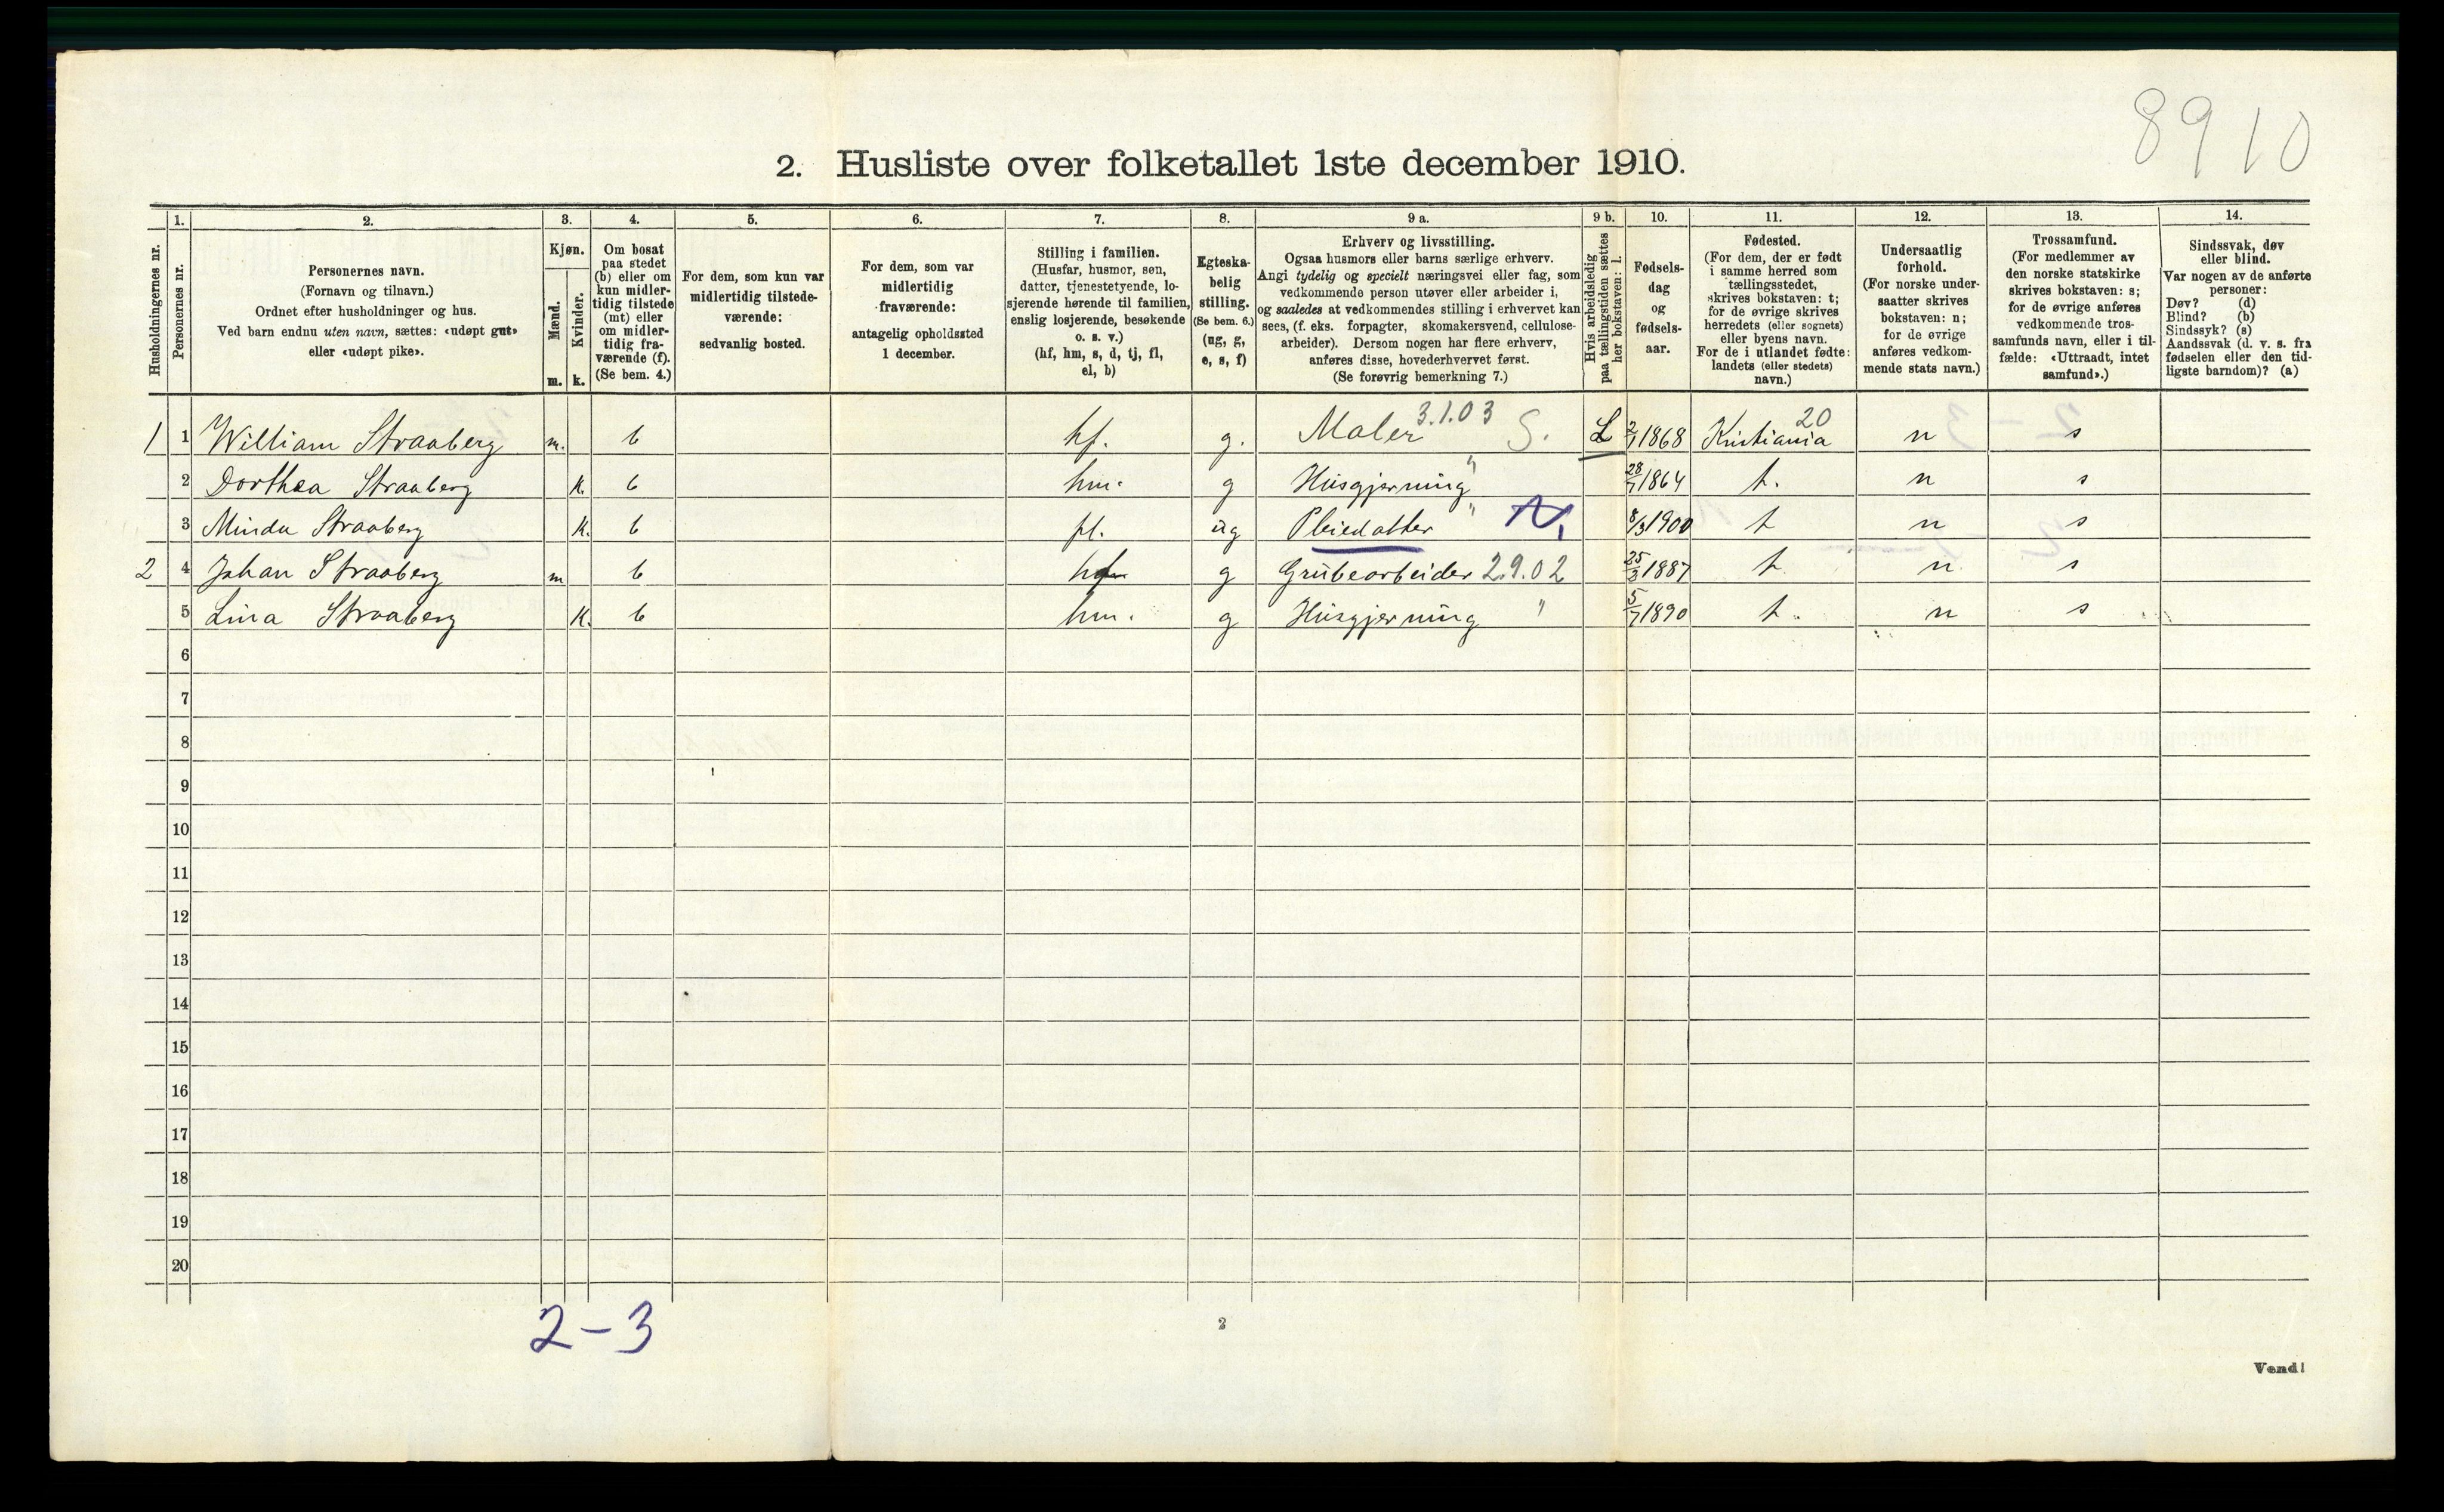 8910
2. Husliste over folketallet 1ste december 1910.
Husholdningernes nr.
1.
Personernes nr.
2.
Personernes navn.
(Fornavn og tilnavn.)
Ordnet efter husholdninger og hus.
Ved barn endnu uten navn, sættes: «udøpt gut»
eller «udøpt pike».
3.
Kjøn.
Mænd.
m.
Kvinder.
k.
4.
Om bosat
paa stedet
(b) eller om
kun midler-
tidig tilstede
(mt) eller
om midler-
tidig fra-
værende (f).
(Se bem. 4.)
5.
For dem, som kun var
midlertidig tilstede-
værende:
sedvanlig bosted.
6.
For dem, som var
midlertidig
fraværende:
antagelig opholdssted
1 december.
7.
Stilling i familien.
(Husfar, husmor, søn,
datter, tjenestetyende, lo-
sjerende hørende til familien,
enslig losjerende, besøkende
o. s. v.)
(hf, hm, s, d, tj, fl,
el, b)
8.
Egteska-
belig
stilling.
(Se bem. 6.)
(ug, g,
e, s, f)
9 a.
Erhverv og livsstilling.
Ogsaa husmors eller barns særlige erhverv.
Angi tydelig og specielt næringsvei eller fag, som
vedkommende person utøver eller arbeider i,
og saaledes at vedkommendes stilling i erhvervet kan
sees, (f. eks. forpagter, skomakersvend, cellulose-
arbeider). Dersom nogen har flere erhverv,
anføres disse, hovederhvervet først.
(Se forøvrig bemerkning 7.)
9 b.
Hvis arbeidsledig
paa tællingstiden sættes
her bokstaven: l.
10.
Fødsels-
dag
og
fødsels-
aar.
11.
Fødested.
(For dem, der er født
i samme herred som
tællingsstedet,
skrives bokstaven: t;
for de øvrige skrives
herredets (eller sognets)
eller byens navn.
For de i utlandet fødte:
landets (eller stedets)
navn.)
12.
Undersaatlig
forhold.
(For norske under-
saatter skrives
bokstaven: n;
for de øvrige
anføres vedkom-
mende stats navn.)
13.
Trossamfund.
(For medlemmer av
den norske statskirke
skrives bokstaven: s;
for de øvrige anføres
vedkommende tros-
samfunds navn, eller i til-
fælde: «Uttraadt, intet
samfund».)
14.
Sindssvak, døv
eller blind.
Var nogen av de anførte
personer:
Døv? (d)
Blind? (b)
Sindssyk? (s)
Aandssvak (d. v. s. fra
fødselen eller den tid-
ligste barndom)? (a)
1 1 William Straaberg m. b hf. g. Maler 3.1.03 S. L 2/1 1868 Kristiania 20 n s
2 Dorthea Straaberg k. b hm. g Husgjerning " 28/7 1864 t. n s
3 Minda Straaberg k. b pl. ug Pleiedatter " N. 8/3 1900 t n s
2 4 Johan Straaberg m b hf g Grubearbeider 2.9.02 25/3 1887 t. n s
5 Lina Straaberg k. b hm. g Husgjerning " 5/7 1890 t. n s
6
7
8
9
10
11
12
13
14
15
16
17
18
19
20
2-3
2
Vend!